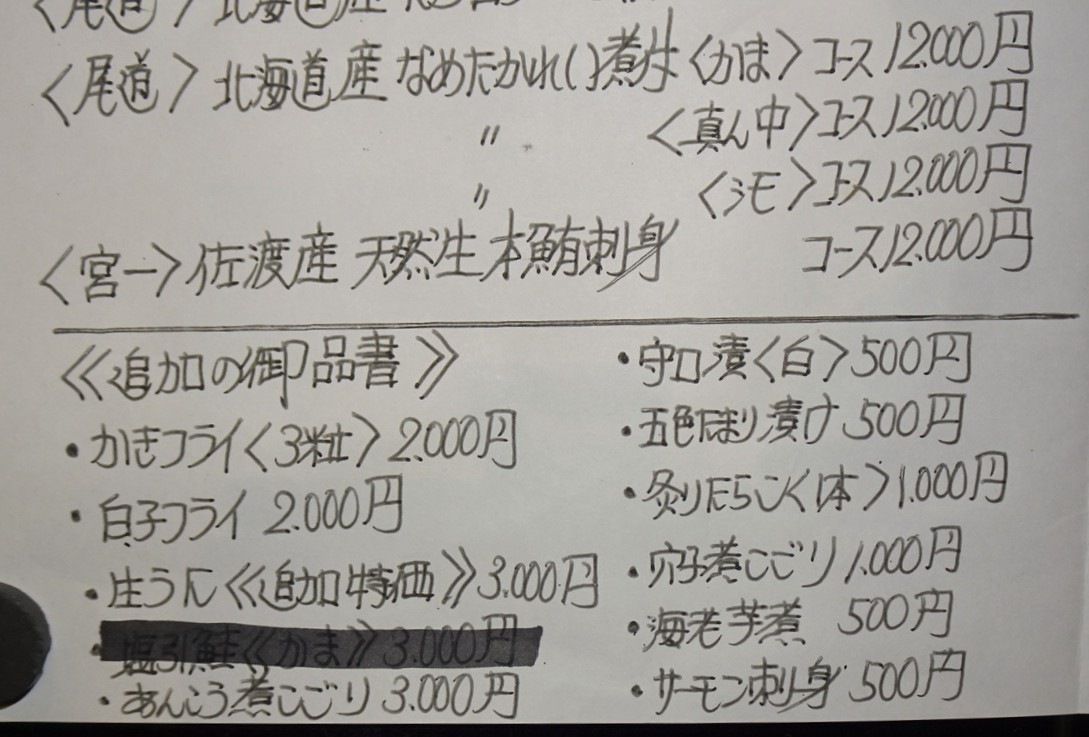 <尾道> 北海道産
<尾道> 北海道産 なめたかれい煮付 <かま> コース 12.000円
〃 <真ん中> コース 12.000円
〃 <シモ> コース 12.000円
<宮一> 佐渡産 天然生本鮪刺身 コース 12.000円
≪追加の御品書≫
・かきフライ<3粒> 2.000円
・白子フライ 2.000円
・生うに≪追加特価≫ 3.000円
・塩引鮭≪かま≫ 3.000円
・あんこう煮こごり 3.000円
・守口漬<白> 500円
・五色たまり漬け 500円
・炙りたらこ<1本> 1.000円
・穴子煮こごり 1.000円
・海老芋煮 500円
・サーモン刺り身 500円